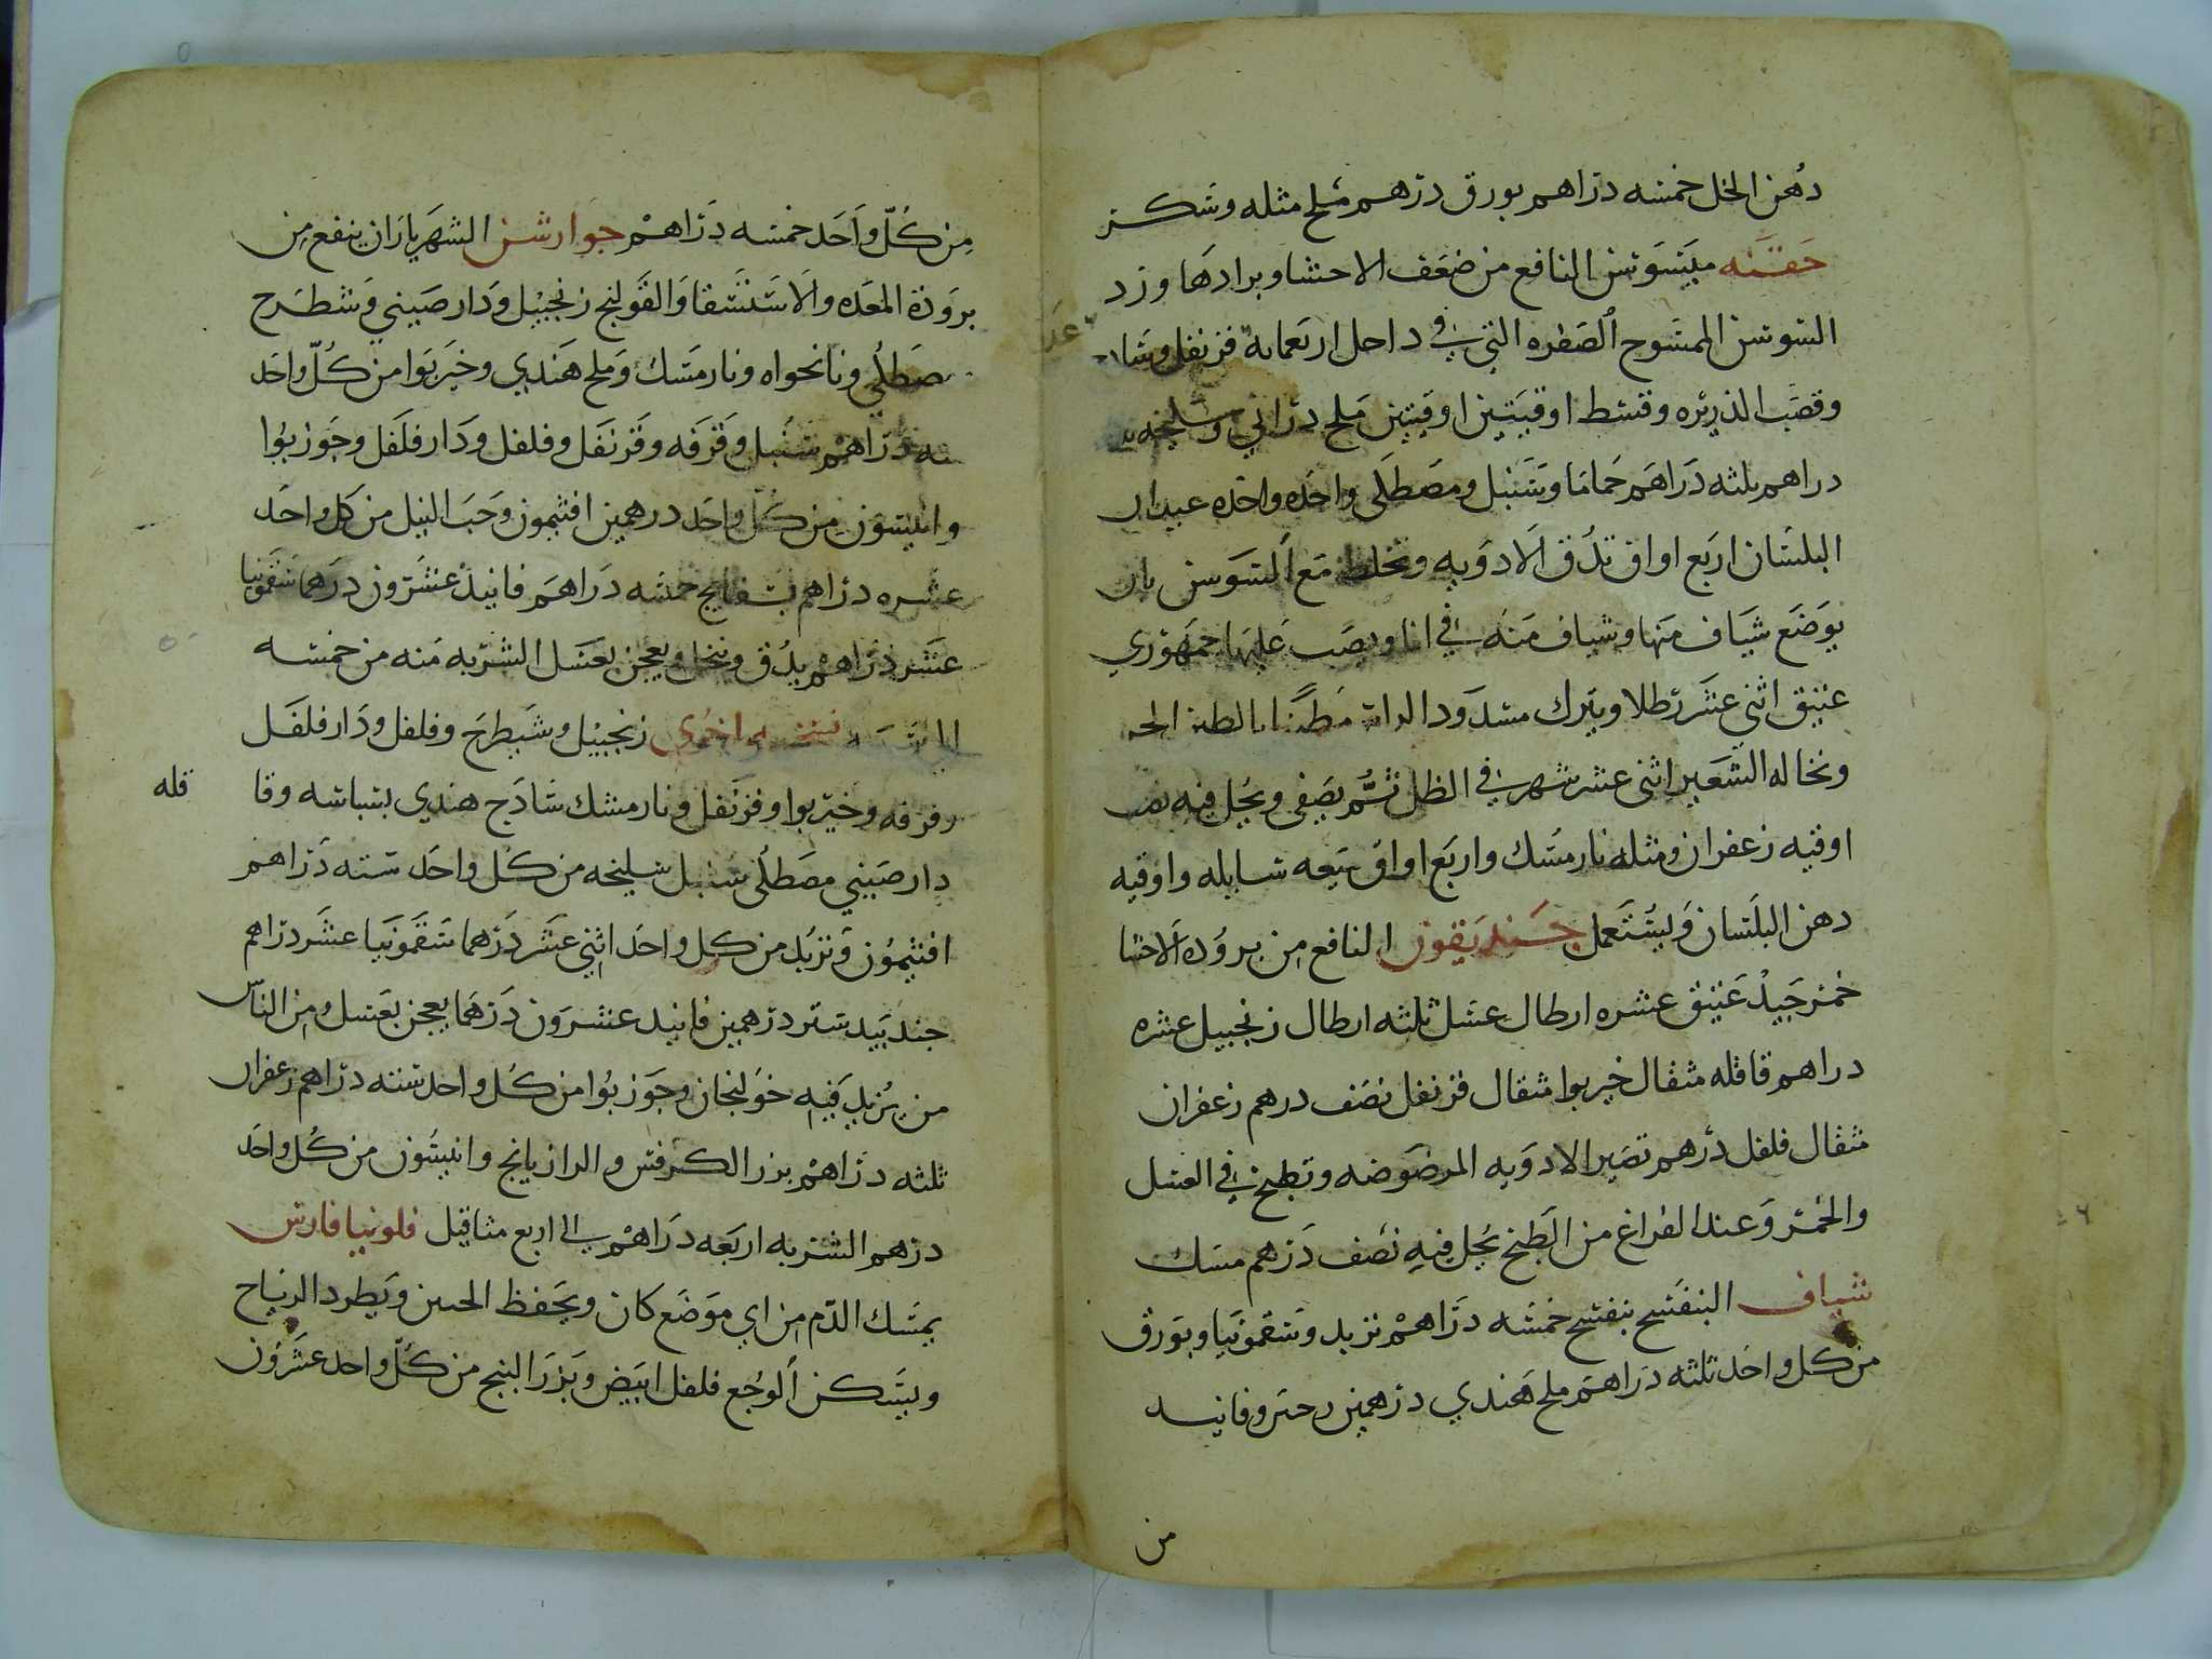 دهن الخل خمسه دراهم بورق درهم ملح مثله وسكر
حقنه ميسوسن النافع من ضعف الاحشا وبرادها ورد
السوسن الممسوح الصفره التي في داخل اربعمايه قرنفل وشا
وقصب الذريره وقسط اوقيتين اوقيتين ملح دراني وسليخه
دراهم ثلثه دراهم حماما وسنبل ومصطلى واحده واحده عيدان
البلسان اربع اواق تدق الادويه وتخلط مع السوسن بان
يوضع شياف منها وشياف منه في انا ويصب عليها جمهوري
عتيق اثني عشر رطلا ويترك مسدود الراس مطينا بالطين الحر
ونخاله الشعير اثنى عشر شهر في الظل ثم يصفى ويحل فيه
اوقيه زعفران ومثله نارمشك واربع اواق ميعه سايله واوقيه
دهن البلسان ويستعمل جنديقون النافع من بروده الاحشا
خمر جيد عتيق عشره ارطال عسل ثلثه ارطال زنجبيل عشره
دراهم قاقله مثقال خيربوا مثقال قرنفل نصف درهم زعفران
مثقال فلفل درهم تصير الادويه المرضوضه وتطبخ في العسل
والخمر وعند الفراغ من الطبخ يحل فيه نصف درهم مسك
شياف البنفسج بنفسج خمسه دراهم تربد وسقمونيا وبورق
من كل واحد ثلثه دراهم ملح هندي درهمين وفانيد
من
من كل واحد خمسه دراهم جوارشن الشهرياران ينفع من
برودة المعده والاستسقا والقولنج زنجبيل ودارصيني وشطرج
صطلي ونانخواه ونارمسك وملح هندي وخيربوا من كل واحد
سته دراهم سنبل وقرفه وقرنفل وفلفل ودارفلفل وجوزبوا
وانيسون من كل واحد درهمين افتيمون وحب النيل من كل واحد
عشره دراهم بسفايج خمسه دراهم فانيذ عشرون درهما سقمونيا
عشر دراهم يدق وينخل ويعجن بعسل الشربه منه من خمسه
الى نسخه اخرى زنجبيل وشيطرج وفلفل ودارفلفل
وقرفه وخيربوا وقرنفل ونارمشك سادج هندي بسباسه وقا
قله
دارصيني مصطلى سنبل سليخه من كل واحد سته دراهم
افتيمون وتربد من كل واحد اثني عشر درهما سقمونيا عشر دراهم
جندبيدستر درهمين فانيد عشرون درهما يعجن بعسل ومن الناس
من يزيد فيه خولنجان وجوزبوا من كل واحد سته دراهم زعفران
ثلثه دراهم بزر الكرفس والرازيانج وانيسون من كل واحد
درهم الشربه اربعه دراهم الى اربع مثاقيل فلونيا فارس
يمسك الدم من اي موضع كان ويحفظ الجنين ويطرد الرياح
ويسكن الوجع فلفل ابيض وبزر البنج من كل واحد عشرون